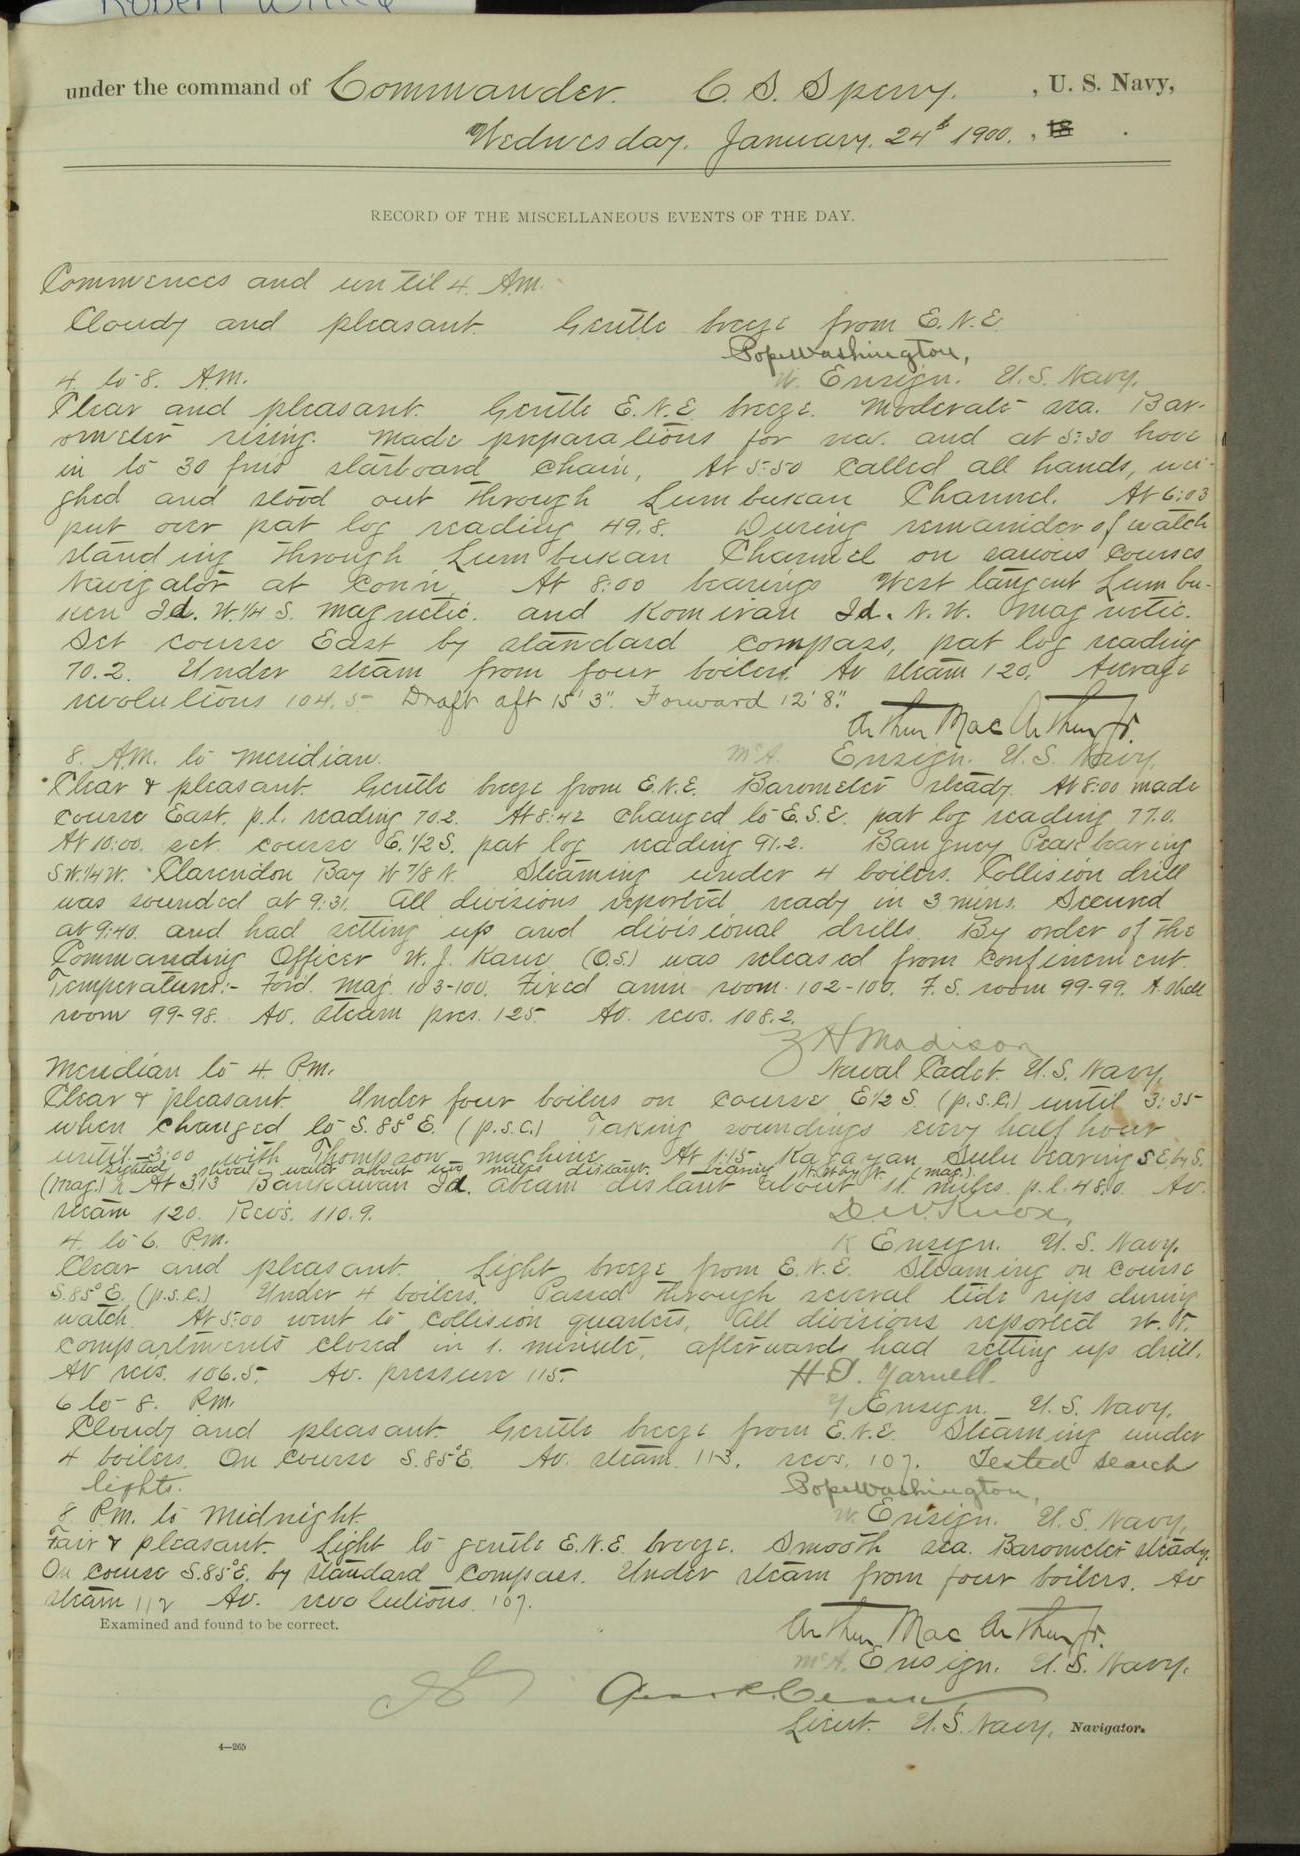 under the command of Commander. C. S. Sperry. , U. S. Navy,
Wednesday. January. 24th 1900. , 18 .
RECORD OF THE MISCELLANEOUS EVENTS OF THE DAY.
Commences and until 4. A.M.
Cloudy and pleasant. Gentle breeze from E.N.E.
Pope Washington,
4 to 8. A.M. W. Ensign. U.S. Navy.
Clear and pleasant. Gentle E.N.E. breeze. Moderate sea. Bar-
ometer rising. Made preparations for sea. and at 5:30 hove
in to 30 fms starboard chain, At 5:50 called all hands, wei-
ghed and stood out through Lumbukan Channel. At 6:03
put over pat log reading 49.8. During remainder of watch
standing through Lumbukan Channel on various courses
Navigator at conn. At 8:00 bearings West tangent Lumbu-
ken Id. W.1/4 S. magnetic. and Komiran Id. N.W. magnetic.
Set course East by standard compass, pat log reading
70.2. Under steam from four boilers. Av steam 120. Average
revolutions 104.5 Draft aft 15' 3". Forward 12' 8".
Arthur Mac Arthur Jr.
8. A.M. to meridian. McA. Ensign. U.S. Navy.
Clear & pleasant. Gentle breeze from E.N.E. Barometer steady. At 8:00 made
course East. p.l. reading 70.2. At 8:42 changed to E.S.E. pat log reading 77.0.
At 10:00. set course E.1/2 S. pat log reading 91.2. Peak bearing
SW.1/4 W. Clarendon Bay W 7/8 N. Steaming under 4 boilers. Collision drill
was sounded at 9:31. All divisions reported ready in 3 mins. Secured
at 9:40. and had setting up and divisional drills. By order of the
Commanding Officer W. J. Kane (O.S.) was released from confinement.
Temperatures:- For'd. mag. 103-100. Fixed amn room. 102-100. F.S. room 99-99. A. shell
room 99-98. Av. steam pres. 125 Av. revs. 108.2.
Z H Madison
Meridian to 4. P.M. Naval Cadet. U.S. Navy.
Clear & pleasant. Under four boilers on course E1/2 S. (p.s.c.) until 3:35
when changed to S.85° E. (p.s.c.) Taking soundings every half hour
until 3:00 with Thompson machine. At 1:15 Kagayan Sulu bearing SE by S.
sighted shoal water about two miles distant. bearing N.W by N. (mag.)
(mag.) At 3:13 Bankawan Id. abeam distant about 11. miles. p.l. 48.0. Av.
steam 120. Revs. 110.9. D.W. Knox,
4. to 6. P.M. K Ensign. U.S. Navy.
Clear and pleasant. Light breeze from E.N.E. Steaming on course
S.85° E. (p.s.c.) Under 4 boilers. Passed through several tide rips during
watch. At 5:00 went to collision quarters, All divisions reported W.T.
compartments closed in 1. minute, afterwards had setting up drill.
Av revs. 106.5. Av. pressure 115. H.E. Yarnell.
6 to 8. P.M. Y Ensign. U.S. Navy.
Cloudy and pleasant. Gentle breeze from E.N.E. Steaming under
4 boilers. On course S.85° E. Av. steam 113. revs. 107. Tested search
lights. Pope Washington,
8 P.M. to Midnight. W. Ensign. U.S. Navy.
Fair & pleasant. Light to gentle E.N.E. breeze. Smooth sea. Barometer steady.
On course S.85° E. by standard compass. Under steam from four boilers. Av
steam 112 Av. revolutions. 107.
Examined and found to be correct.
Arthur Mac Arthur Jr.
McA. Ensign. U.S. Navy.
Lieut. U.S. Navy, Navigator.
4—265